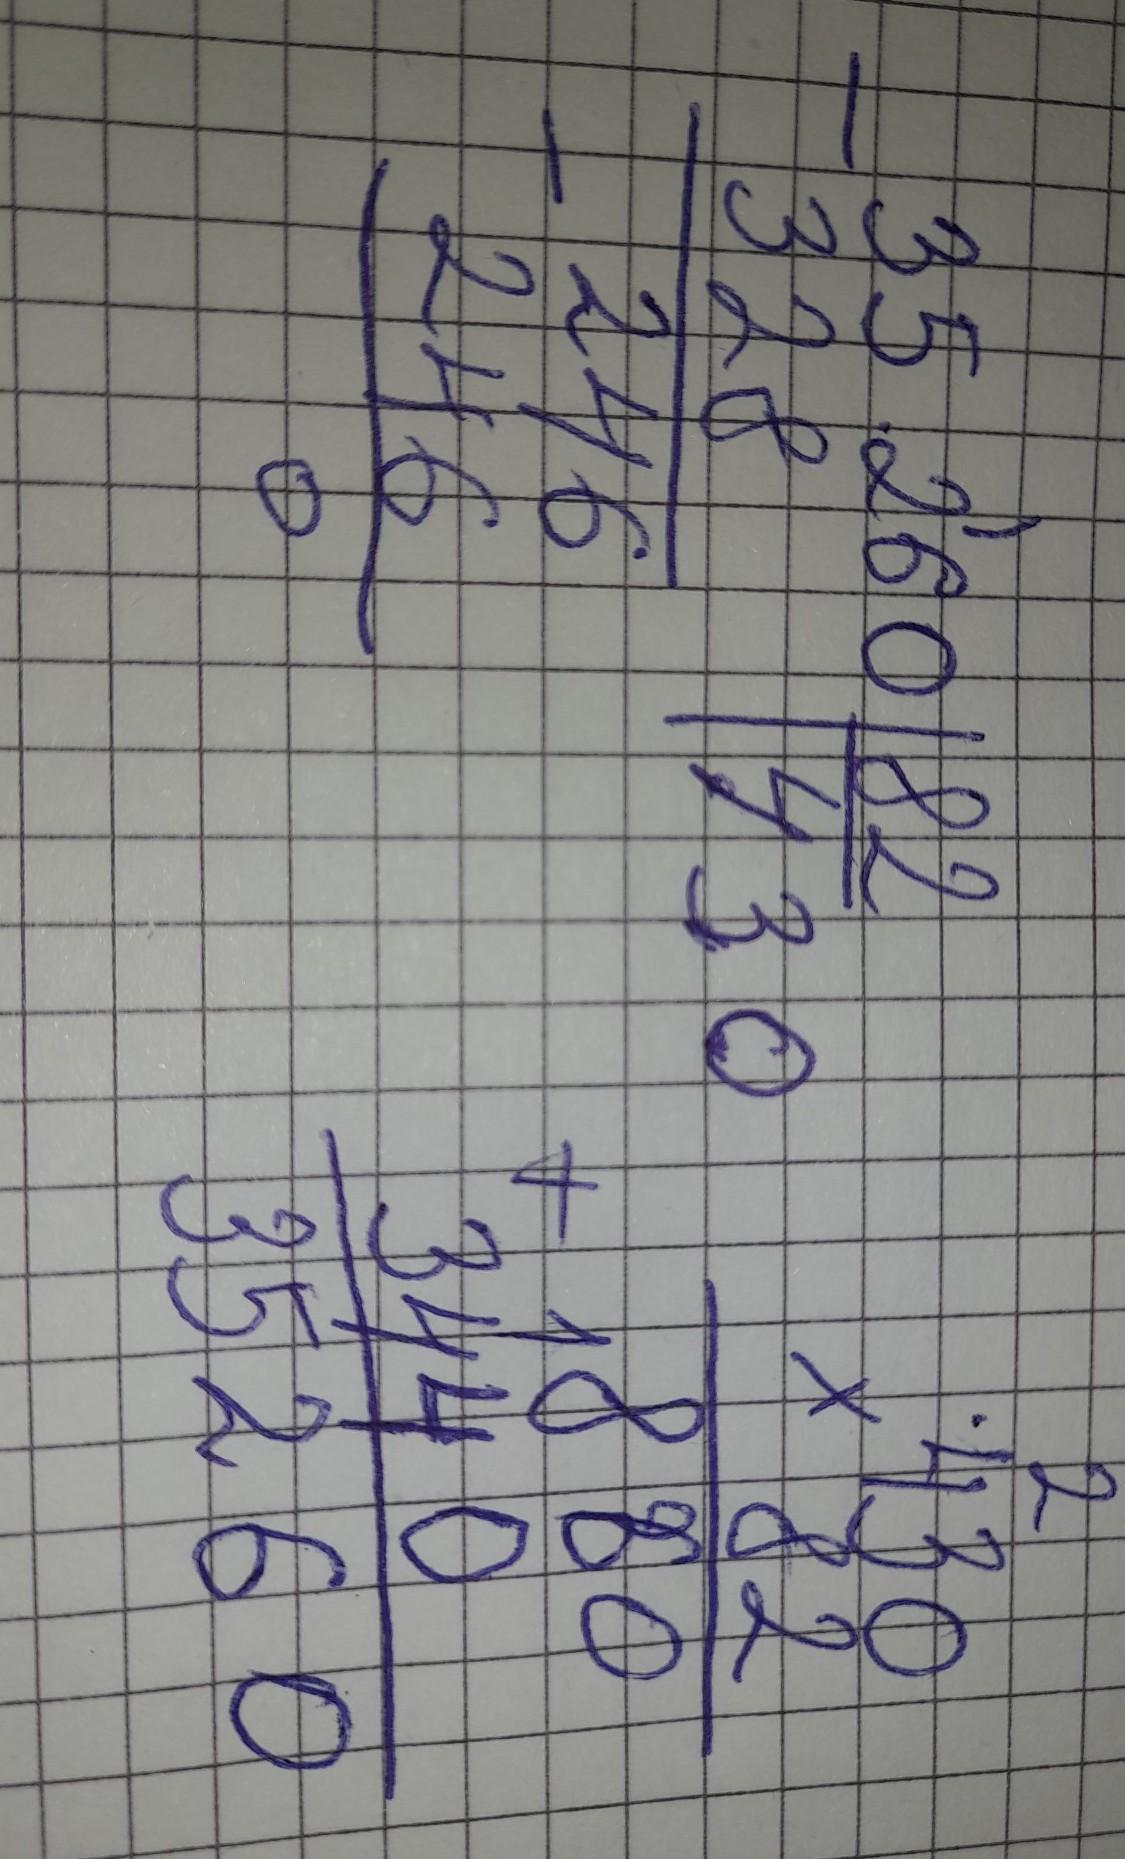 35260 | 82
- 328 | 430
- 246
246
0
2
430
× 82
+ 1860
3440
35260